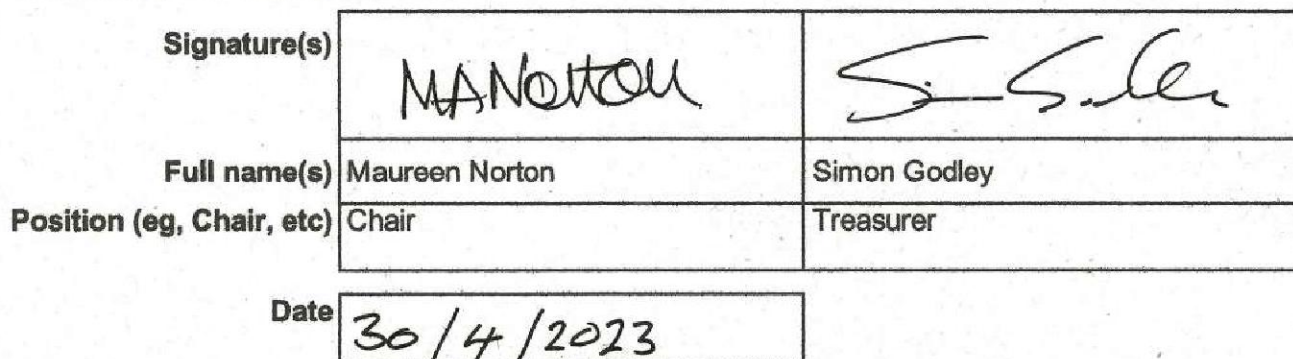 Signature(s) MANorton
Full name(s) Maureen Norton Simon Godley
Position (eg, Chair, etc) Chair Treasurer
Date 30/4/2023